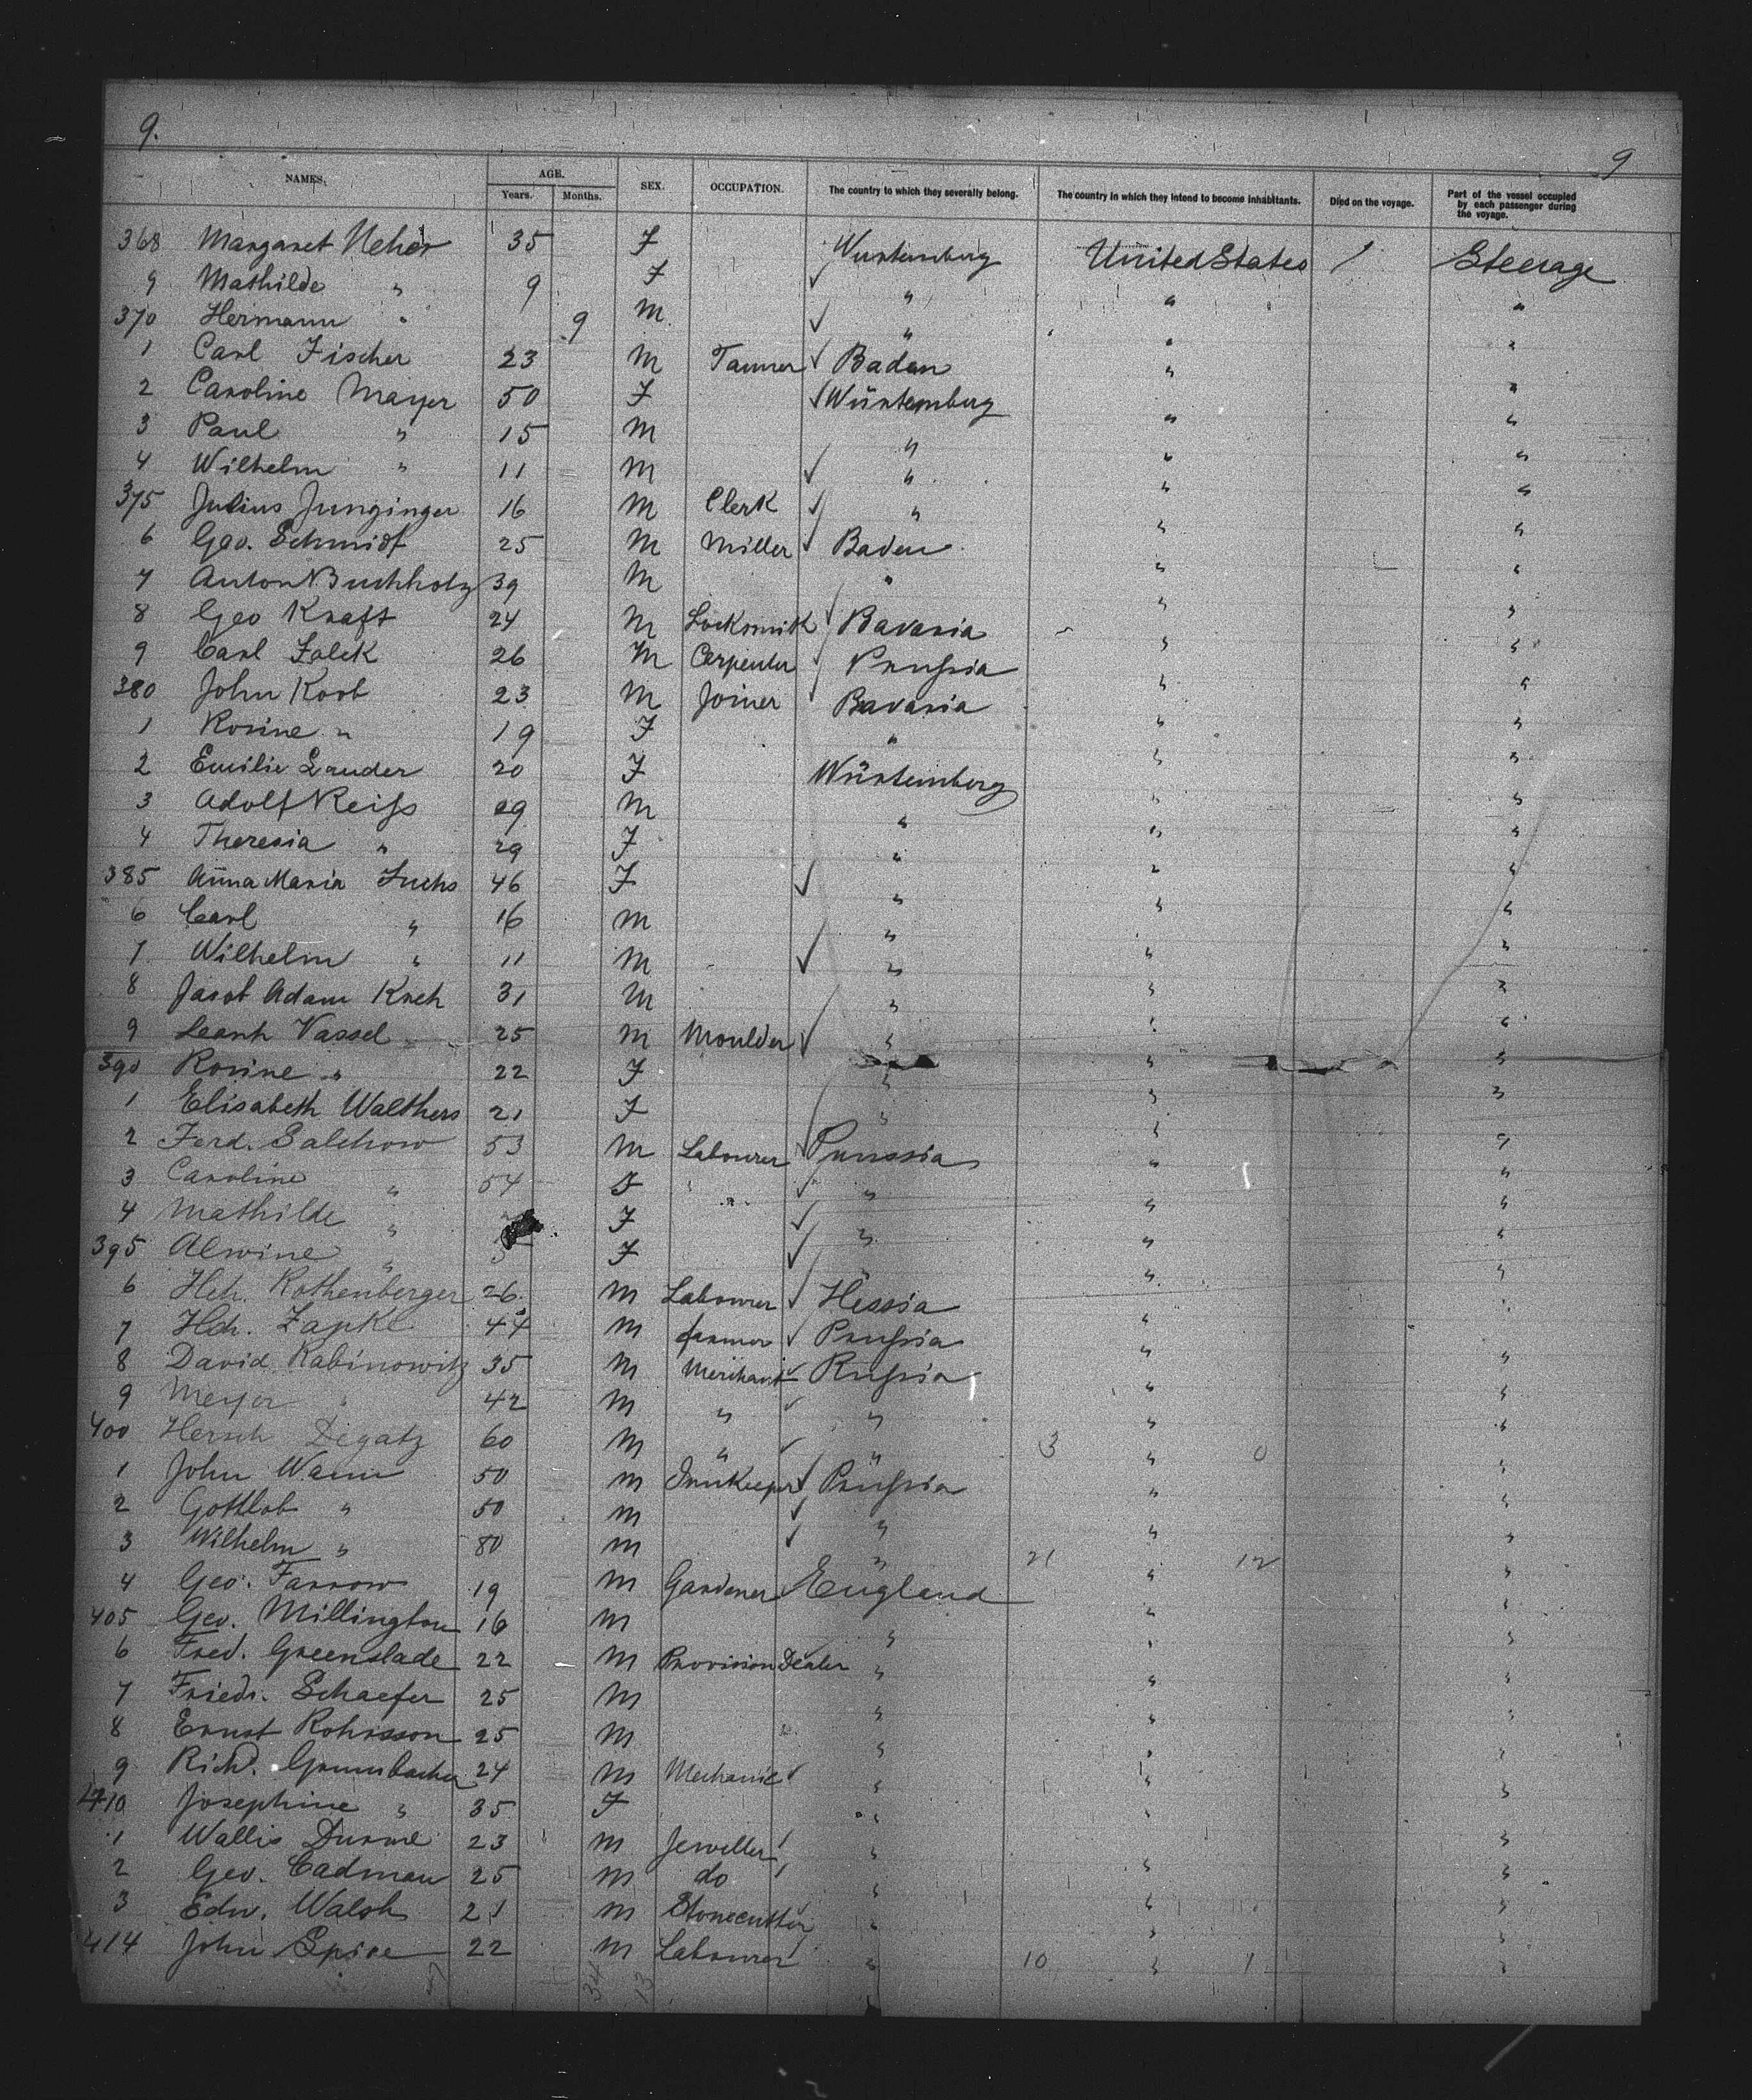 9. 9
NAMES. AGE. SEX. OCCUPATION. The country to which they severally belong. The country in which they intend to become inhabitants. Died on the voyage. Part of the vessel occupied by each passenger during the voyage.
Years. Months.
368 Margaret Neher 35 F Wurtemberg United States / Steerage
9 Mathilde " 9 F " " "
370 Hermann " 9 M " " "
1 Carl Fischer 23 M Tanner Baden " "
2 Caroline Mayer 50 F Würtemberg " "
3 Paul " 15 M " " "
4 Wilhelm " 11 M " " "
375 Julius Junginger 16 M Clerk " " "
6 Geo. Schmidt 25 M Miller Baden " "
7 Anton Buchholz 39 M " " "
8 Geo Kraft 24 M Locksmith Bavaria " "
9 Carl Falck 26 M Carpenter Prussia " "
380 John Koob 23 M Joiner Bavaria " "
1 Rosine " 19 F " " "
2 Emilie Lauder 20 F Würtemberg " "
3 Adolf Reiss 29 M " " "
4 Theresia " 29 F " " "
385 Anna Maria Fuchs 46 F " " "
6 Carl " 16 M " " "
7 Wilhelm " 11 M " " "
8 Jacob Adam Kreh 31 M " " "
9 Vassel 25 M Moulder " " "
390 Rosine " 22 F " " "
1 Elisabeth Walthers 21 F " " "
2 Ferd. Salchow 53 M Labourer Prussia " "
3 Caroline " 54 F " " " "
4 Mathilde " F " " "
395 Alwine " 5 F " " "
6 Hch. Rothenberger 26 M Labourer Hessia " "
7 Hch. Zapke 44 M farmer Prussia " "
8 David Rabinowitz 35 M Merchant Russia " "
9 Meyer " 42 M " " " "
400 Hersch Degatz 60 M " " 3 " 0 "
1 John Wann 50 M Innkeeper Prussia " "
2 Gottlob " 50 M " " "
3 Wilhelm " 80 M " 21 " 12 "
4 Geo. Farrow 19 M Gardener England " "
405 Geo. Millington 16 M " " "
6 Fred. Greenslade 22 M Provision Dealer " " "
7 Friedr. Schaefer 25 M " " "
8 Ernst Rohrsson 25 M " " "
9 Richd. Grumbacher 24 M Mechanic " " "
410 Josephine " 35 F " " "
1 Wallis Durne 23 M Jeweller " " "
2 Geo. Cadman 25 M do " " "
3 Edw. Walsh 21 M Stonecutter " " "
414 John Spice 22 M Labourer " 10 " 1 "
34 13